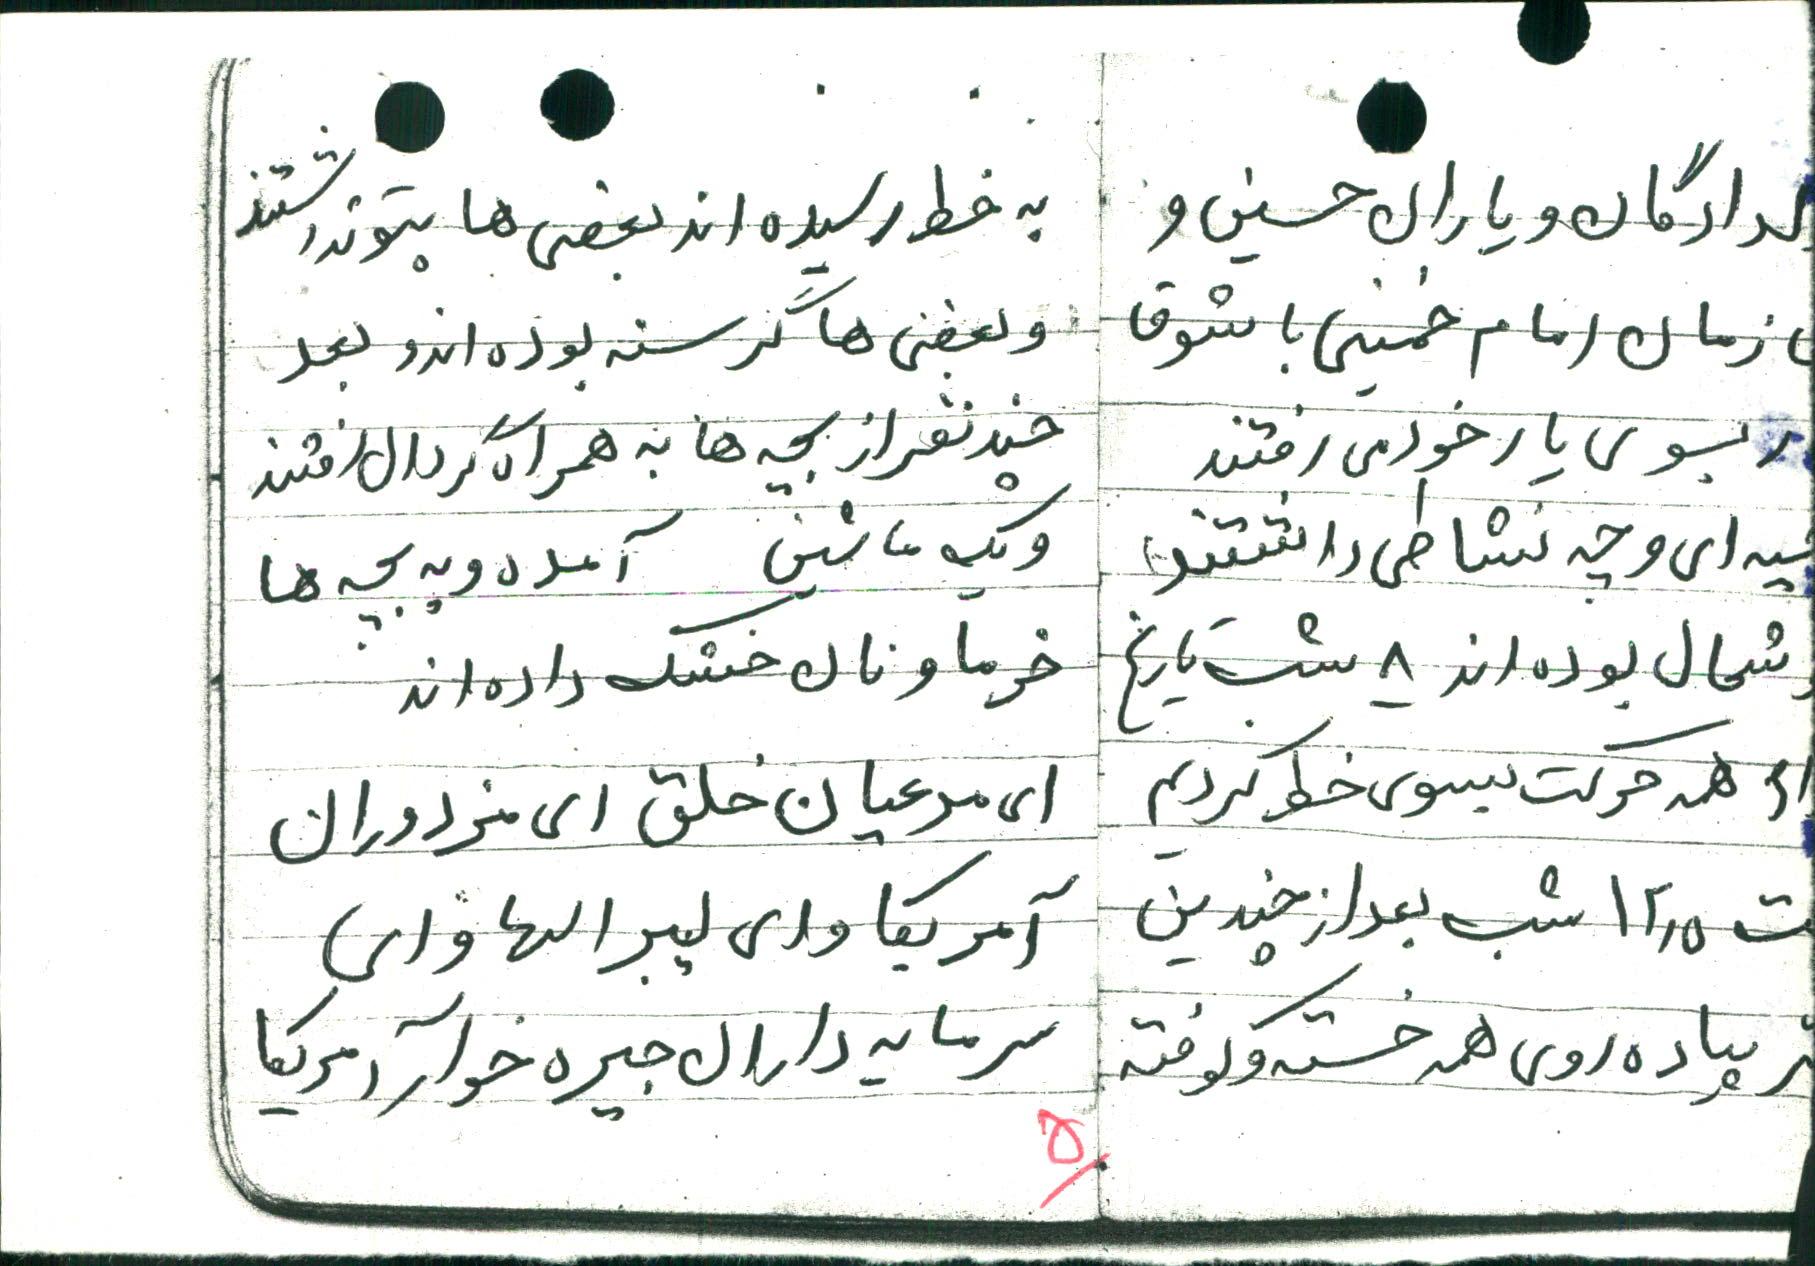 دلدادگان و یاران حسین و
زمان امام خمینی با شوق
بسوی یار خود می رفتند
ای و چه نشاطی داشتند
شمال بوده اند ۸ شب تاریخ
همه حرکت بسوی خط کردیم
۱۲٫۵ شب بعد از چندین
پیاده روی همه خسته و کوفته
به خط رسیده اند بعضی ها پتو نداشتند
و بعضی ها گرسنه بوده اند و بعد
چند نفر از بچه ها به همراه گردان رفتند
و یک ماشین آمده و به بچه ها
خرما و نان خشک داده اند
ای مدعیان خلق ای مزدوران
آمریکا و ای لیبرالها و ای
سرمایه داران جیره خوار آمریکا
۵